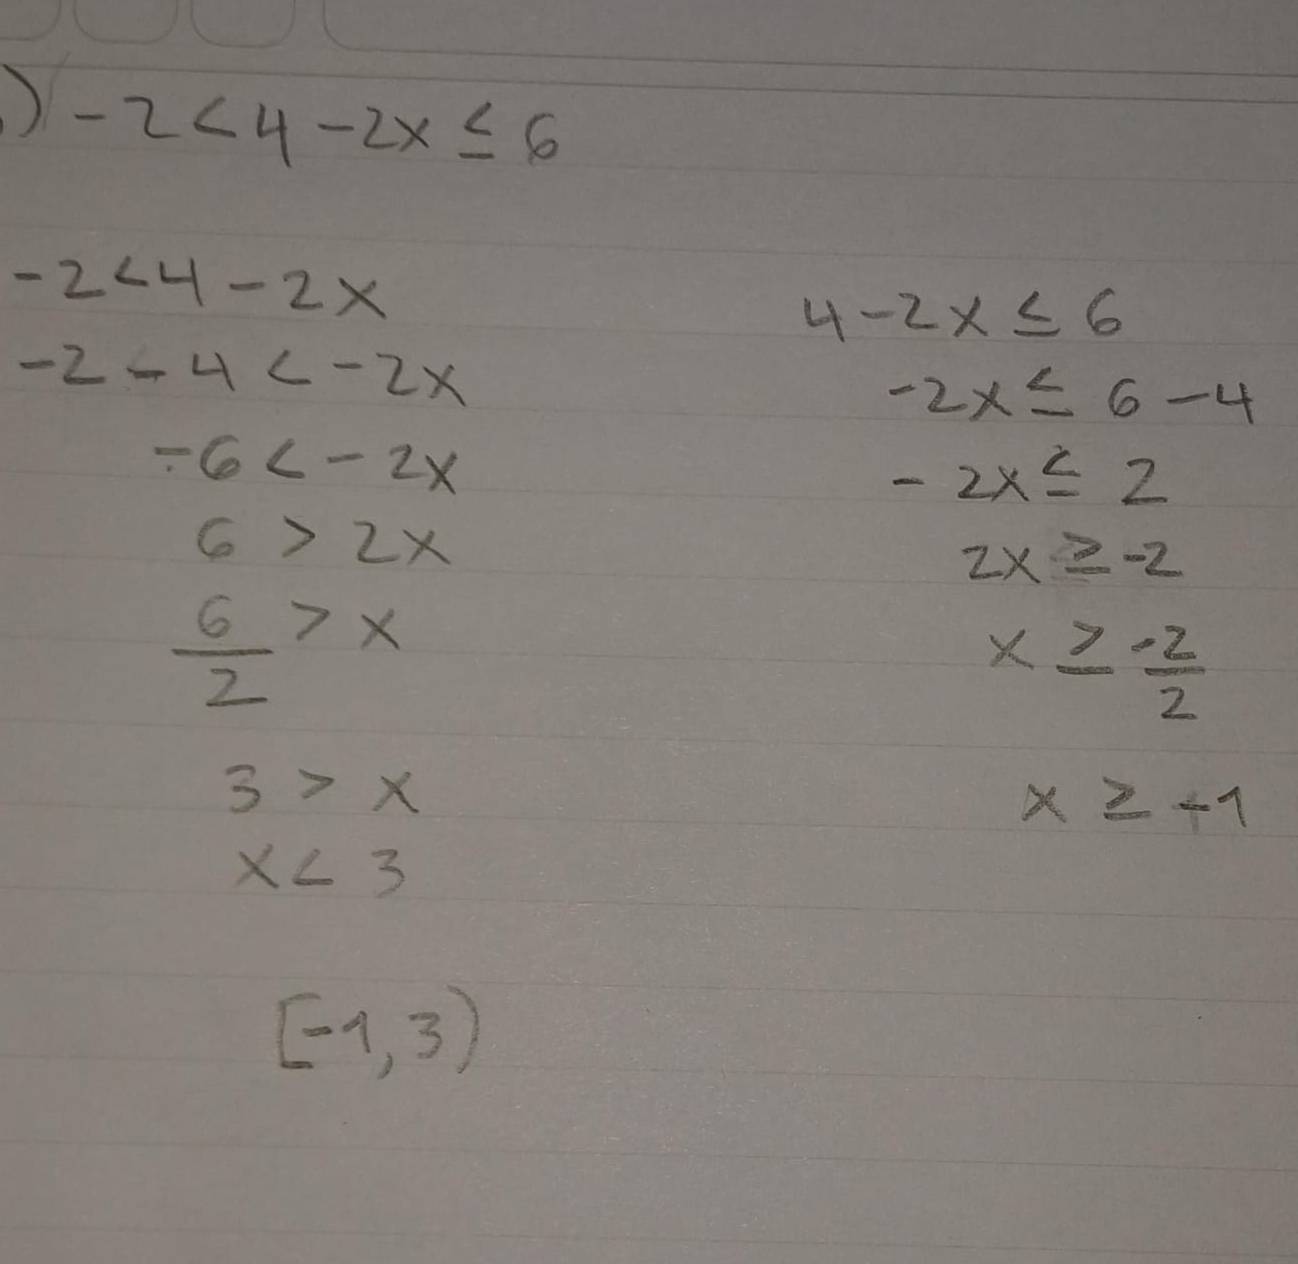 ) -2 < 4 - 2x ≤ 6
-2 < 4 - 2x
-2 - 4 < -2x
-6 < -2x
6 > 2x
6/2 > x
3 > x
x < 3
4 - 2x ≤ 6
-2x ≤ 6 - 4
-2x ≤ 2
2x ≥ -2
x ≥ -2/2
x ≥ -1
[-1, 3)